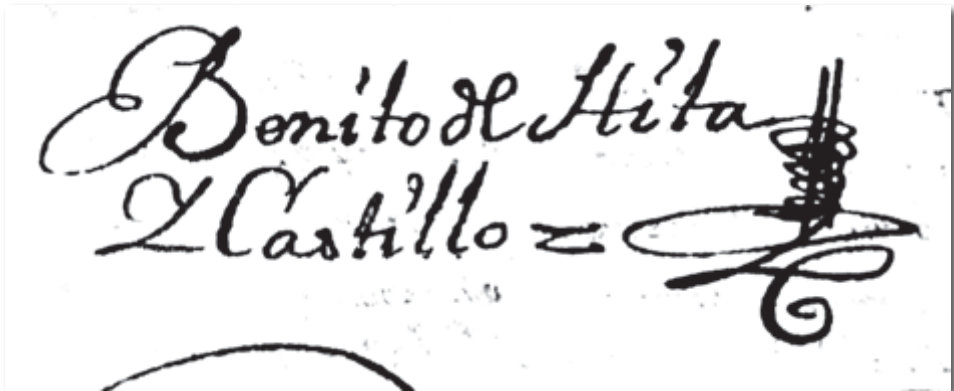 Benito de Hita
Y Castillo =